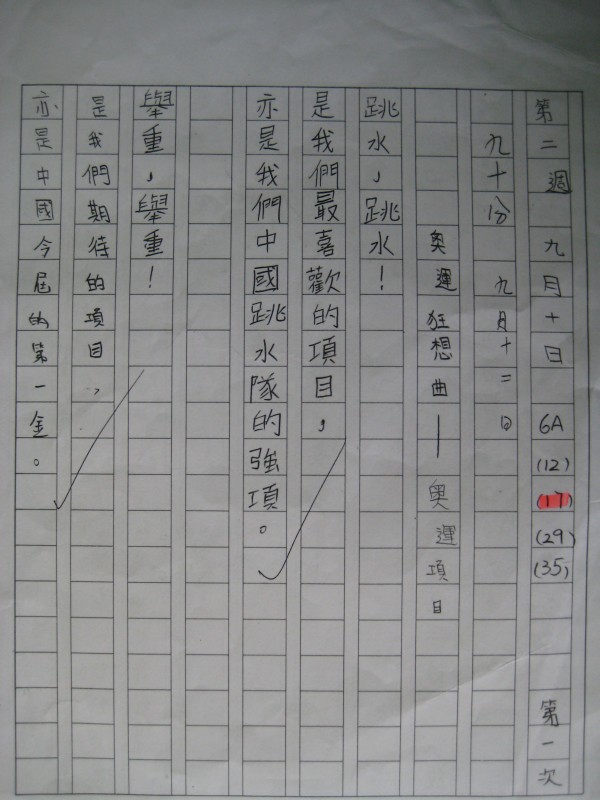 第二週 九月十日 6A (12) (17) (29) (35) 第一次
九十分 九月十二日
奧運狂想曲—奧運項目
跳水，跳水！
是我們最喜歡的項目，
亦是我們中國跳水隊的強項。
舉重，舉重！
是我們期待的項目，
亦是中國今屆的第一金。